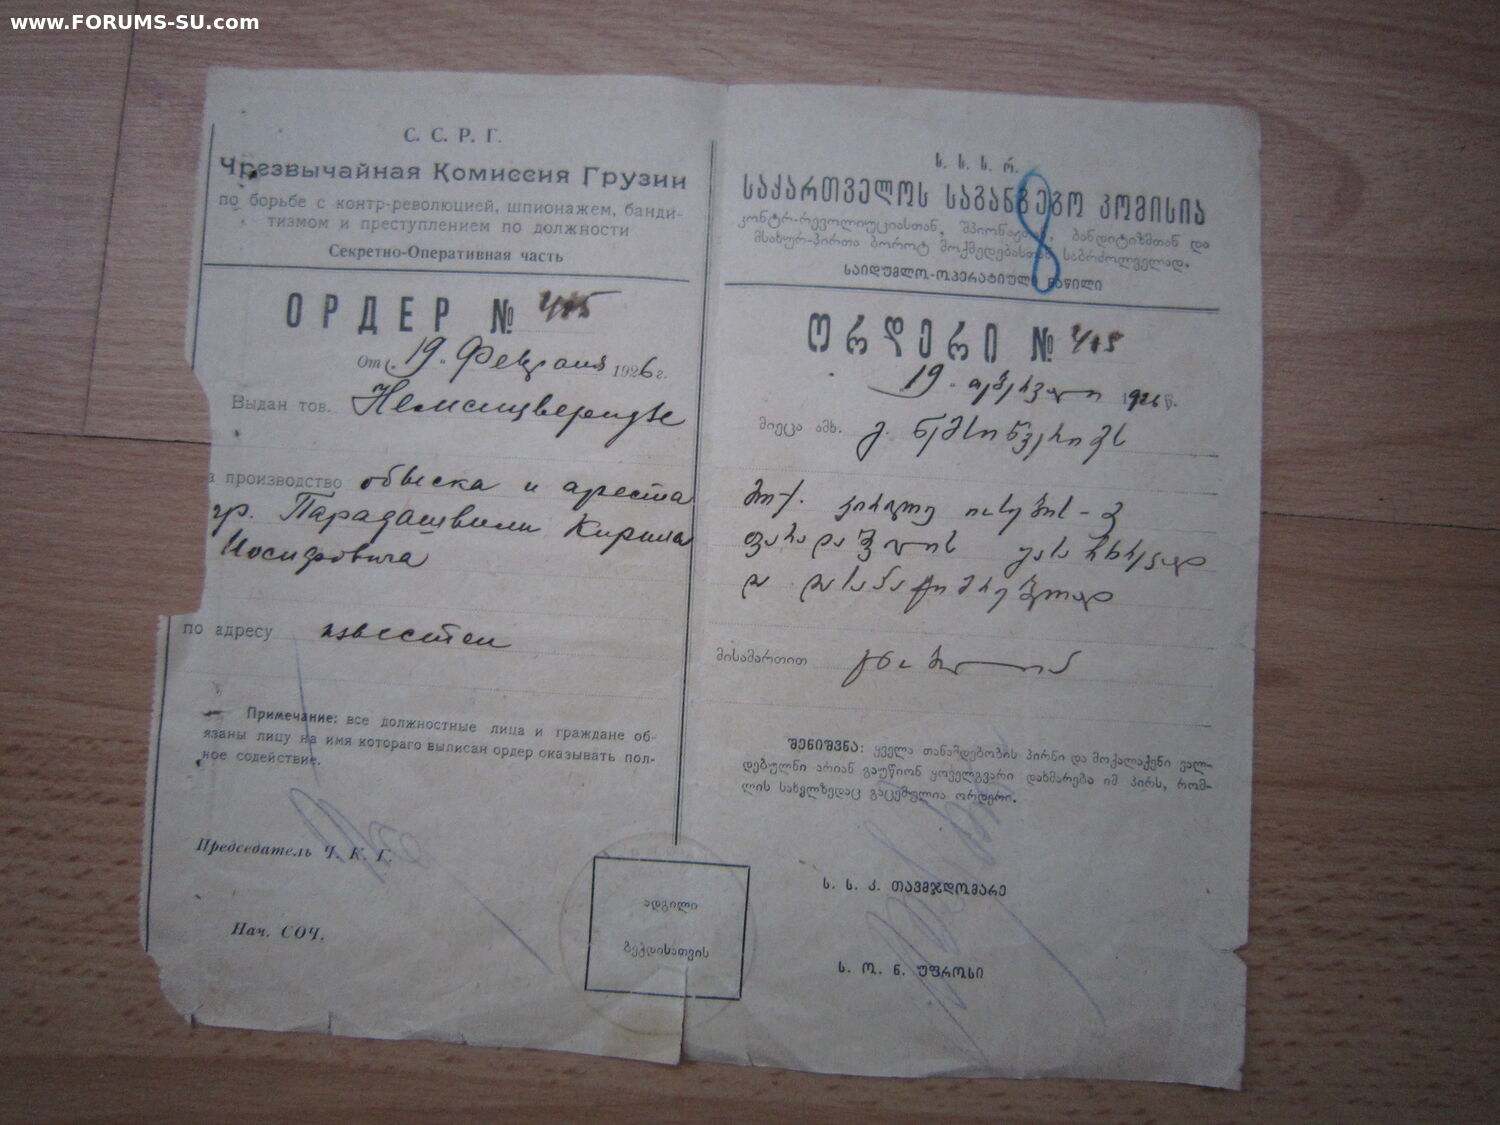 www.FORUMS-SU.com
С. С. Р. Г.
Чрезвычайная Комиссия Грузии
по борьбе с контр-революцией, шпионажем, банди-
тизмом и преступлением по должности
Секретно-Оперативная часть
ОРДЕР № 405
От „19„ Февраля 1926 г.
Выдан тов. Немсицверидзе
производство обыска и ареста
гр. Парадашвили Кирила
Иосифовича
по адресу
Примечание: все должностные лица и граждане об-
язаны лицу на имя котораго выписан ордер оказывать пол-
ное содействие.
Председатель Ч. К. Г.
Нач. СОЧ.
ს. ს. ს. რ.
საქართველოს საგანგებო კომისია
კონტრ-რევოლიუციასთან, შპიონაჟთან, ბანდიტიზმთან და
მსახურ-პირთა ბოროტ მოქმედებასთან საბრძოლველად.
საიდუმლო-ოპერატიული ნაწილი
ორდერი № 405
19 თებერვალი 1926 წ.
მიეცა ამხ.
მისამართით
შენიშვნა: ყველა თანამდებობის პირნი და მოქალაქენი ვალ-
დებულნი არიან გაუწიონ ყოველგვარი დახმარება იმ პირს, რომ-
ლის სახელზედაც გაცემულია ორდერი.
ს. ს. კ. თავმჯდომარე
ს. ო. ნ. უფროსი
ადგილი
ბეჭდისათვის
8